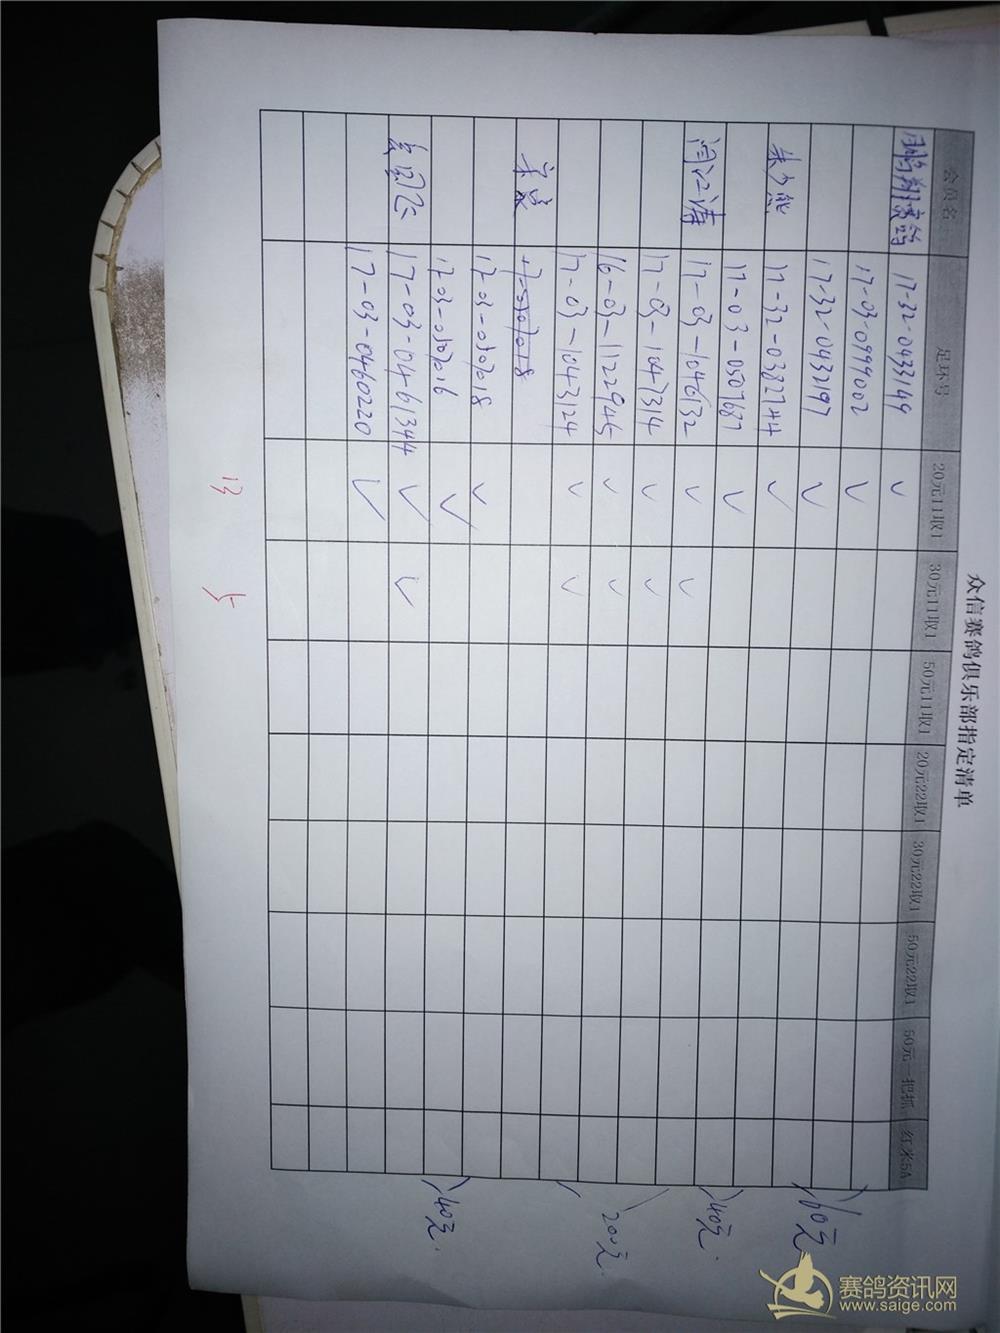 众信赛鸽俱乐部指定清单
会员名 足环号 20元11取1 30元11取1 50元11取1 20元22取1 30元22取1 50元22取1 50元一把抓 红米5A
鹏翔赛鸽 17-32-0433149 ✓
17-03-0999002 ✓
17-32-0432197 ✓
17-32-0382744 ✓
17-03-0507687 ✓
闫江涛 17-03-1046132 ✓ ✓
17-03-1047314 ✓ ✓
16-03-1122945 ✓ ✓
17-03-1043124 ✓ ✓
17-03-0707018 ✓
17-03-0707016 ✓
17-03-0461344 ✓ ✓
17-03-0460220 ✓
13
5
60元
40元
200元
40元
赛鸽资讯网
www.saige.com